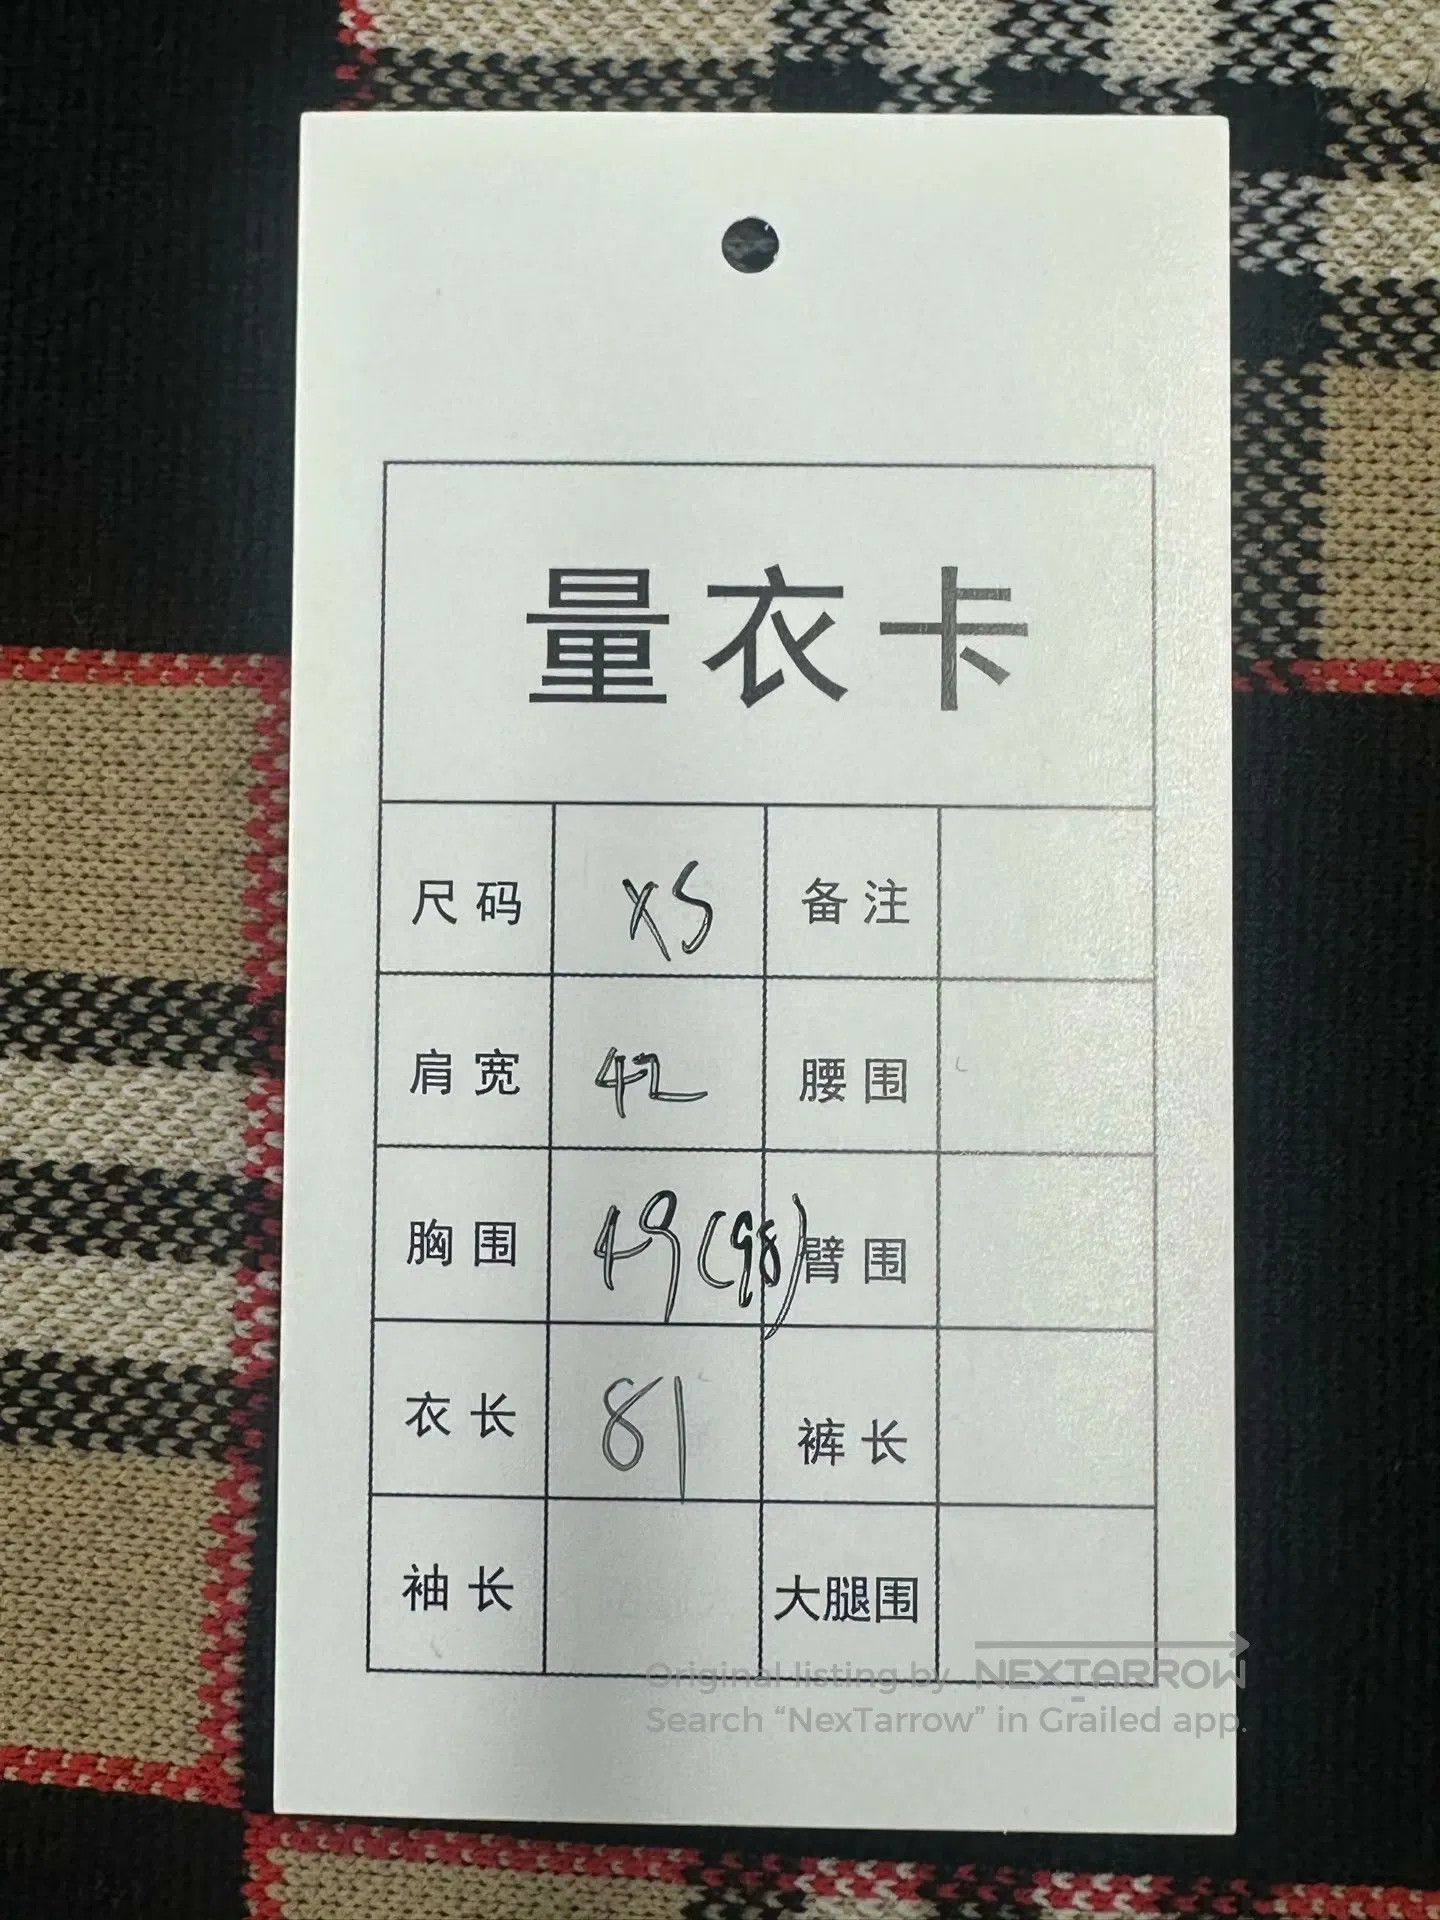 量衣卡
尺码 XS 备注
肩宽 42 腰围
胸围 49(98) 臂围
衣长 81 裤长
袖长 大腿围
Original listing by NEXTARROW
Search “NexTarrow” in Grailed app.